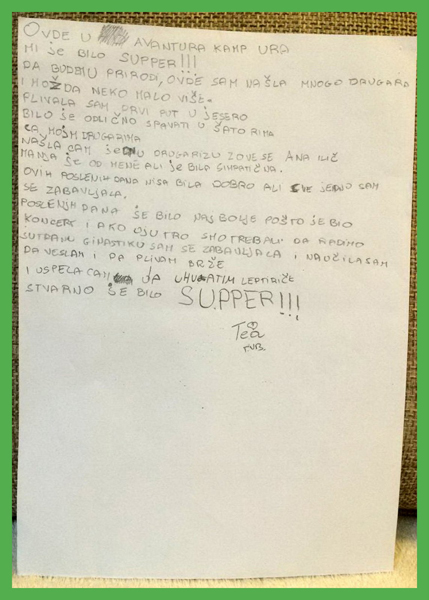 OVDE U AVANTURA KAMP URA
MI JE BILO SUPPER!!!
DA BUDEMU PRIRODI, OVDE SAM NAŠLA MNOGO DRUGARA
I MOŽDA NEKO MALO VIŠE.
PLIVALA SAM PRVI PUT U JESERO
BILO JE ODLIČNO SPAVATI U ŠATORIMA
SA MOJM DRUGARIMA
NAŠLA SAM JEDNU DRUGARIZU ZOVE SE ANA ILIČ
MANJA ŠE OD MENE ALI JE BILA SIMPATIČNA.
OVIH POSLENIH DANA NISA BILA DOBRO ALI SVE JEDNO SAM
SE ZABAVLJALA.
POSLENJIH DANA ŠE BILO NAJ BOLJE POŠTO JE BIO
KONCERT I AKO UJUTRO SMO TREBALI DA RADIMO
JUTRANU GINASTIKU SAM SE ZABAVLJALA I NAUČILA SAM
DA VESLAM I DA PLIVAM BRŽE
I USPELA SAM DA UHVATIM LEPTIRIČE
STVARNO ŠE BILO SUPPER!!!
Tea